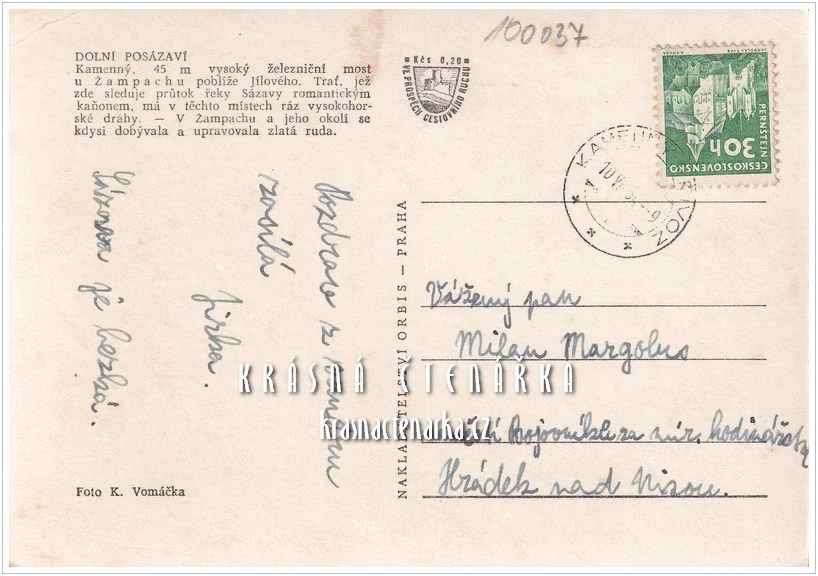 100037
DOLNÍ POSÁZAVÍ
Kamenný, 45 m vysoký železniční most
u Žampachu poblíže Jílového. Trať, jež
zde sleduje průtok řeky Sázavy romantickým
kaňonem, má v těchto místech ráz vysokohor-
ské dráhy. — V Žampachu a jeho okolí se
kdysi dobývala a upravovala zlatá ruda.
Kčs 0,20
VE PROSPĚCH CESTOVNÍHO RUCHU
30h
ČESKOSLOVENSKO
PERNŠTEJN
KAMENNÝ PŘÍVOZ
Pozdrav z
zasílá
Jirka.
Sázava je hezká.
NAKLADATELSTVÍ ORBIS — PRAHA
Vážený pan
Milan Margolus
Bojovníků za mír. hodinářství
Hrádek nad Nisou.
KRÁSNÁ ČTENÁRKA
krasnactenarka.cz
Foto K. Vomáčka